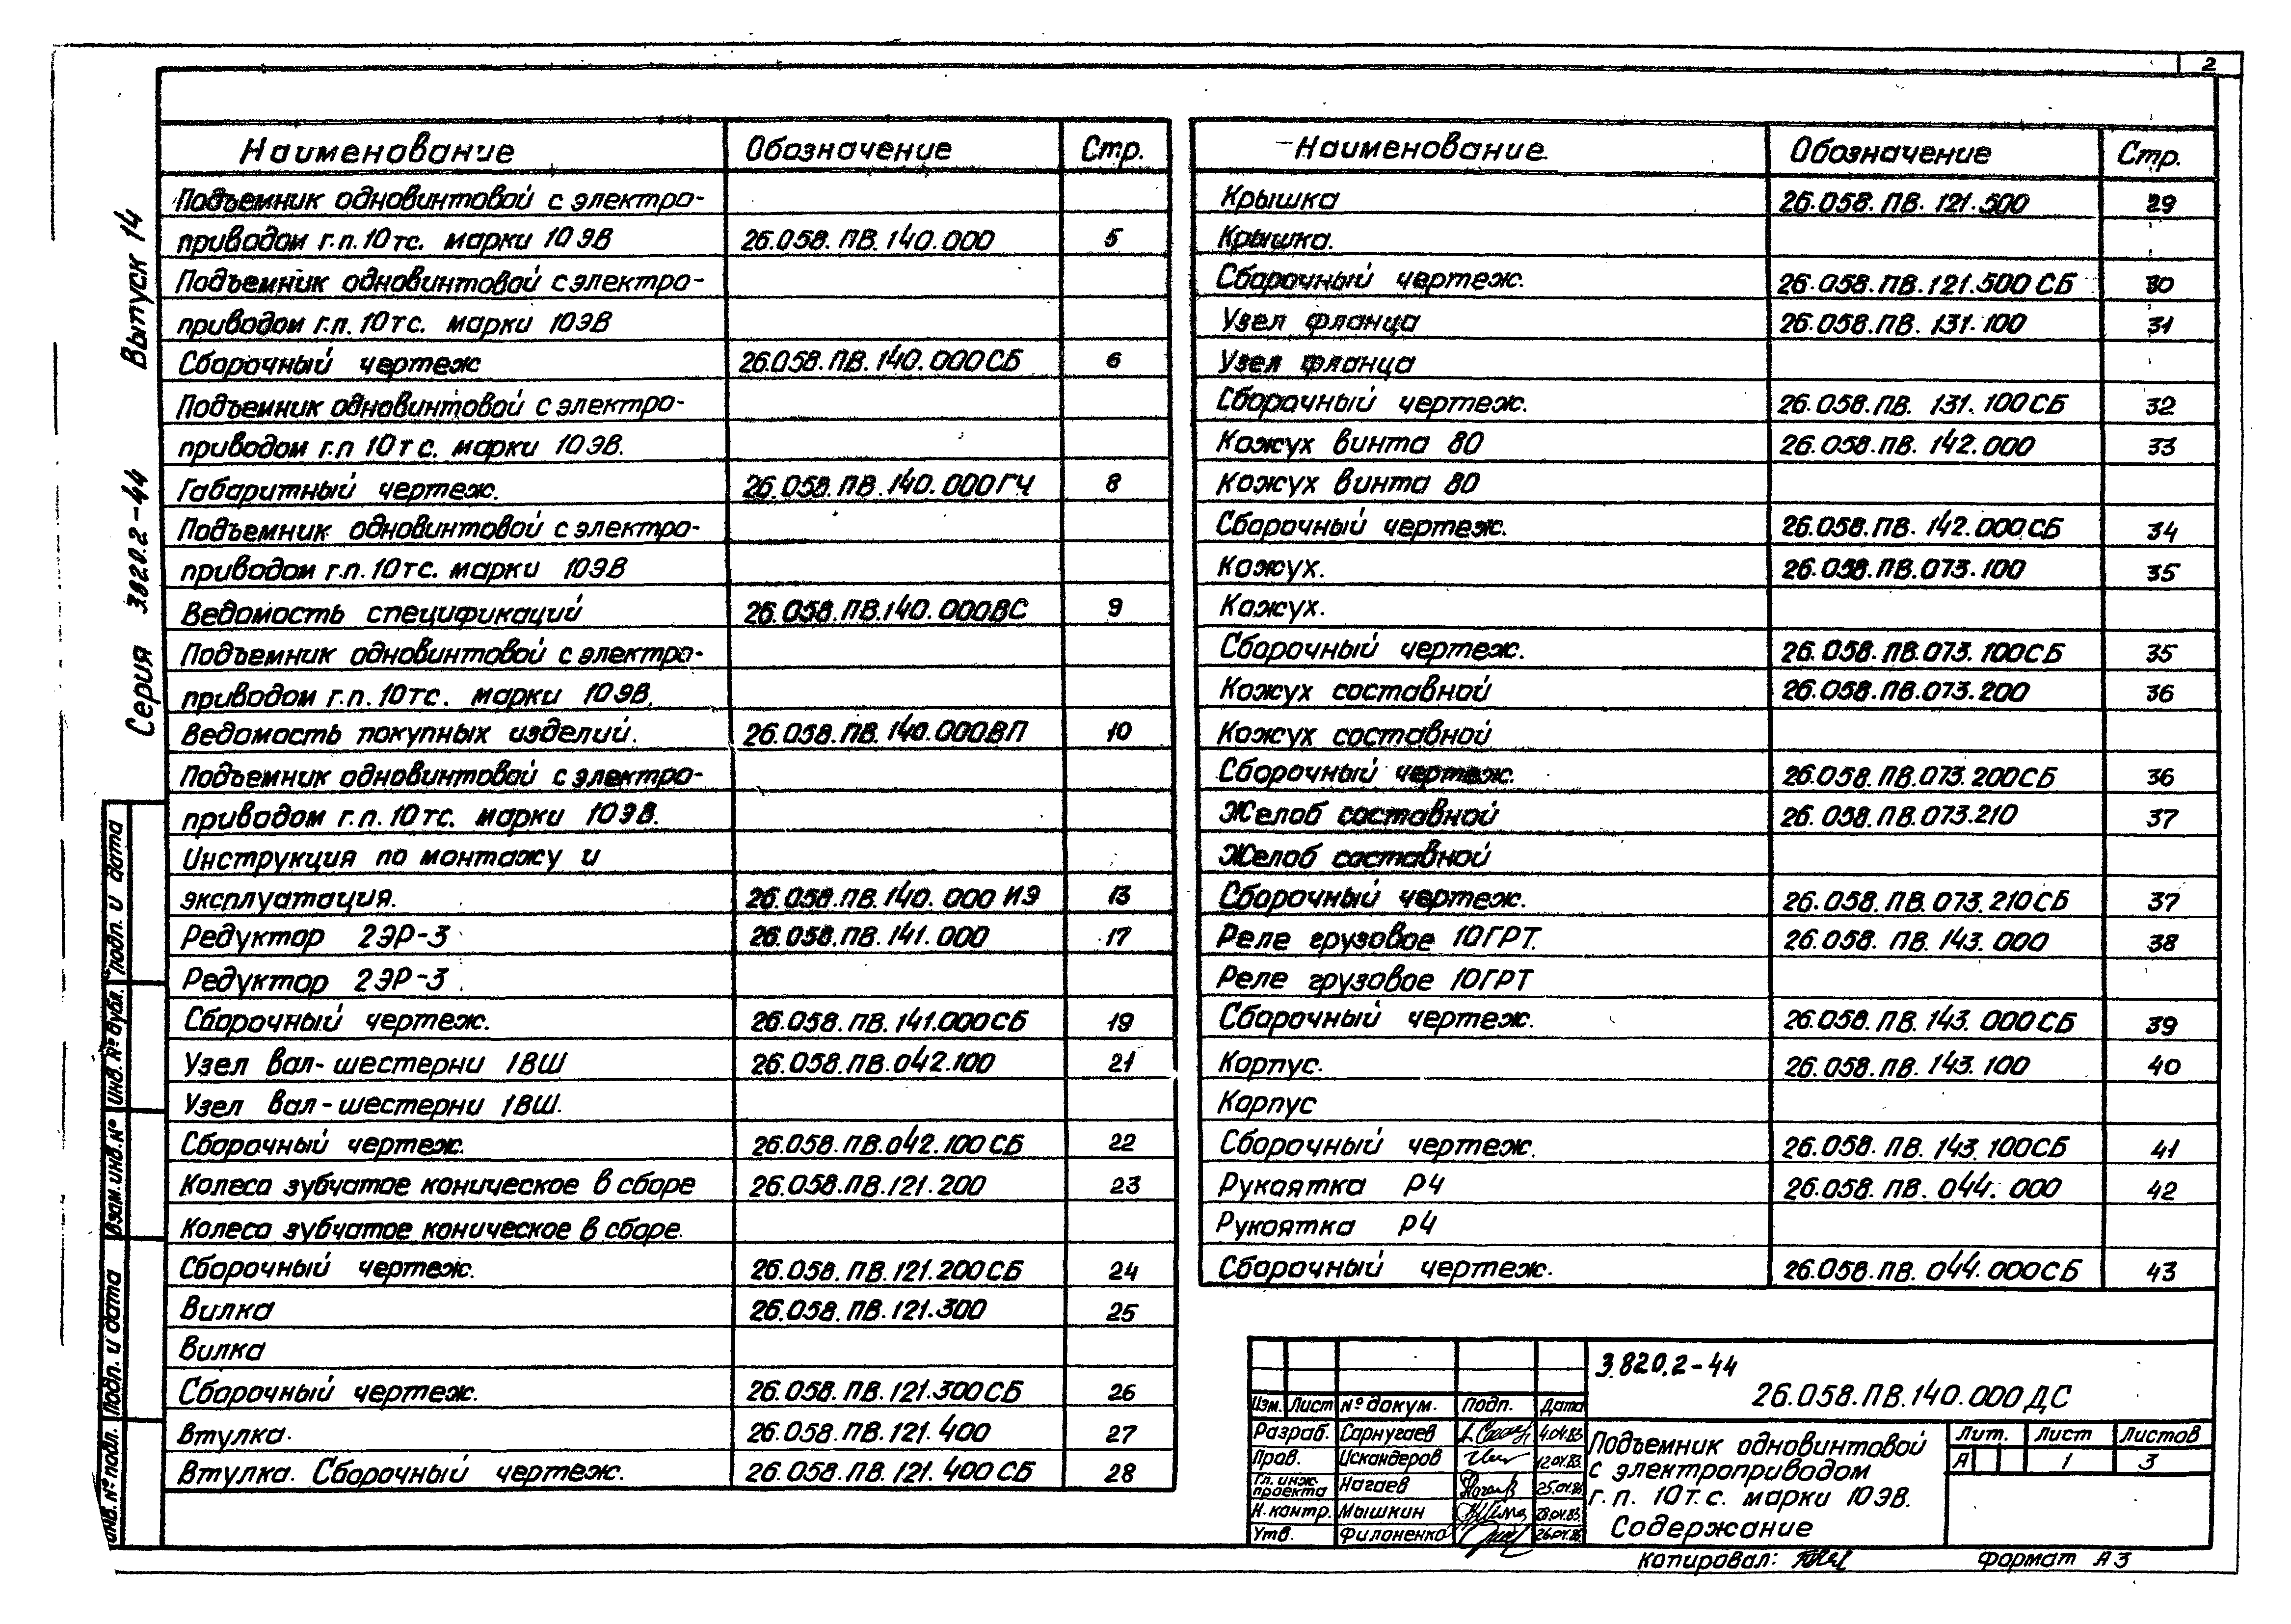 2
Серия 3.820.2-44 Выпуск 14
Наименование Обозначение Стр.
Подъемник одновинтовой с электро-
приводом г.п. 10тс. марки 10ЭВ 26.058.ПВ.140.000 5
Подъемник одновинтовой с электро-
приводом г.п. 10тс. марки 10ЭВ
Сборочный чертеж 26.058.ПВ.140.000СБ 6
Подъемник одновинтовой с электро-
приводом г.п 10тс. марки 10ЭВ.
Габаритный чертеж. 26.058.ПВ.140.000ГЧ 8
Подъемник одновинтовой с электро-
приводом г.п. 10тс. марки 10ЭВ
Ведомость спецификаций 26.058.ПВ.140.000ВС 9
Подъемник одновинтовой с электро-
приводом г.п. 10тс. марки 10ЭВ.
Ведомость покупных изделий. 26.058.ПВ.140.000ВП 10
Подъемник одновинтовой с электро-
приводом г.п. 10тс. марки 10ЭВ.
Инструкция по монтажу и
эксплуатация. 26.058.ПВ.140.000 ИЭ 13
Редуктор 2ЭР-3 26.058.ПВ.141.000 17
Редуктор 2ЭР-3
Сборочный чертеж. 26.058.ПВ.141.000СБ 19
Узел вал-шестерни 1ВШ 26.058.ПВ.042.100 21
Узел вал-шестерни 1ВШ.
Сборочный чертеж. 26.058.ПВ.042.100СБ 22
Колеса зубчатое коническое в сборе 26.058.ПВ.121.200 23
Колеса зубчатое коническое в сборе.
Сборочный чертеж. 26.058.ПВ.121.200СБ 24
Вилка 26.058.ПВ.121.300 25
Вилка
Сборочный чертеж. 26.058.ПВ.121.300СБ 26
Втулка. 26.058.ПВ.121.400 27
Втулка. Сборочный чертеж. 26.058.ПВ.121.400СБ 28
Наименование Обозначение Стр.
Крышка 26.058.ПВ.121.500 29
Крышка.
Сборочный чертеж. 26.058.ПВ.121.500СБ 30
Узел фланца 26.058.ПВ.131.100 31
Узел фланца
Сборочный чертеж. 26.058.ПВ.131.100СБ 32
Кожух винта 80 26.058.ПВ.142.000 33
Кожух винта 80
Сборочный чертеж. 26.058.ПВ.142.000СБ 34
Кожух. 26.058.ПВ.073.100 35
Кожух.
Сборочный чертеж. 26.058.ПВ.073.100СБ 35
Кожух составной 26.058.ПВ.073.200 36
Кожух составной
Сборочный чертеж. 26.058.ПВ.073.200СБ 36
Желоб составной 26.058.ПВ.073.210 37
Желоб составной
Сборочный чертеж. 26.058.ПВ.073.210СБ 37
Реле грузовое 10ГРТ. 26.058.ПВ.143.000 38
Реле грузовое 10ГРТ
Сборочный чертеж. 26.058.ПВ.143.000СБ 39
Корпус. 26.058.ПВ.143.100 40
Корпус
Сборочный чертеж. 26.058.ПВ.143.100СБ 41
Рукоятка Р4 26.058.ПВ.044.000 42
Рукоятка Р4
Сборочный чертеж. 26.058.ПВ.044.000СБ 43
Инв. № подл. Подп. и дата Взам. инв. № Инв. № дубл. Подп. и дата
3.820.2-44
26.058.ПВ.140.000 ДС
Изм. Лист № докум. Подп. Дата
Разраб. Сарнугаев 4.04.83
Пров. Искандеров 12.04.83
Гл. инж. проекта Нагаев 25.04.83
Н. контр. Мышкин
Утв. Филоненко
Подъемник одновинтовой
с электроприводом
г.п. 10т.с. марки 10ЭВ.
Содержание
Лит. Лист Листов
А 1 3
Копировал: Формат А3